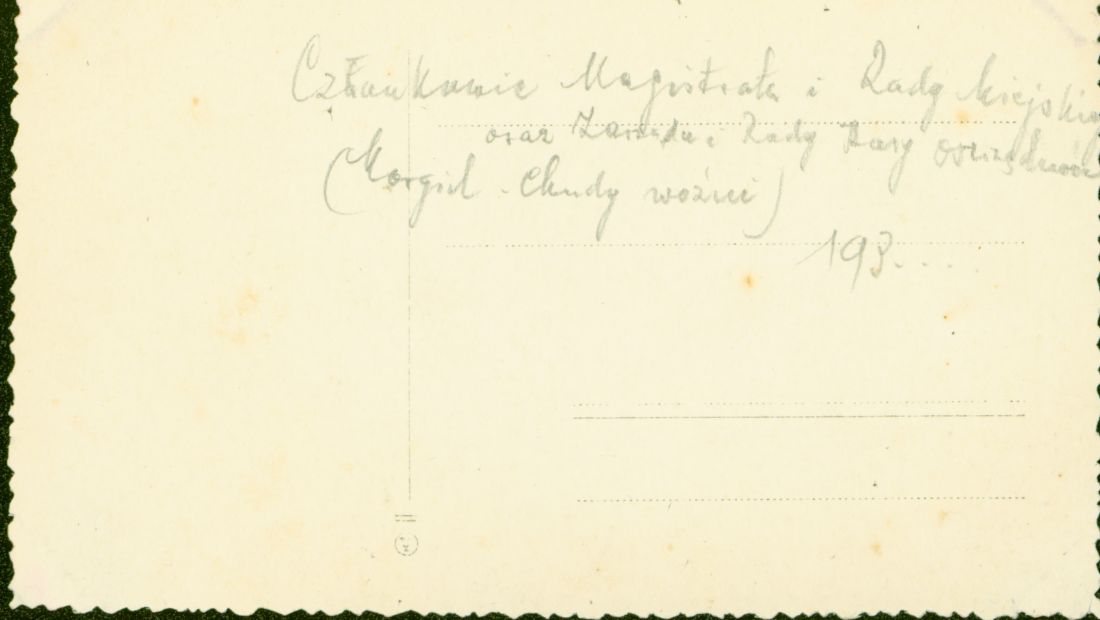 Członkowie Magistratu i Rady Miejskiej
oraz Zarządu i Rady Kasy Oszczędności
( - Chudy woźni)
193.....